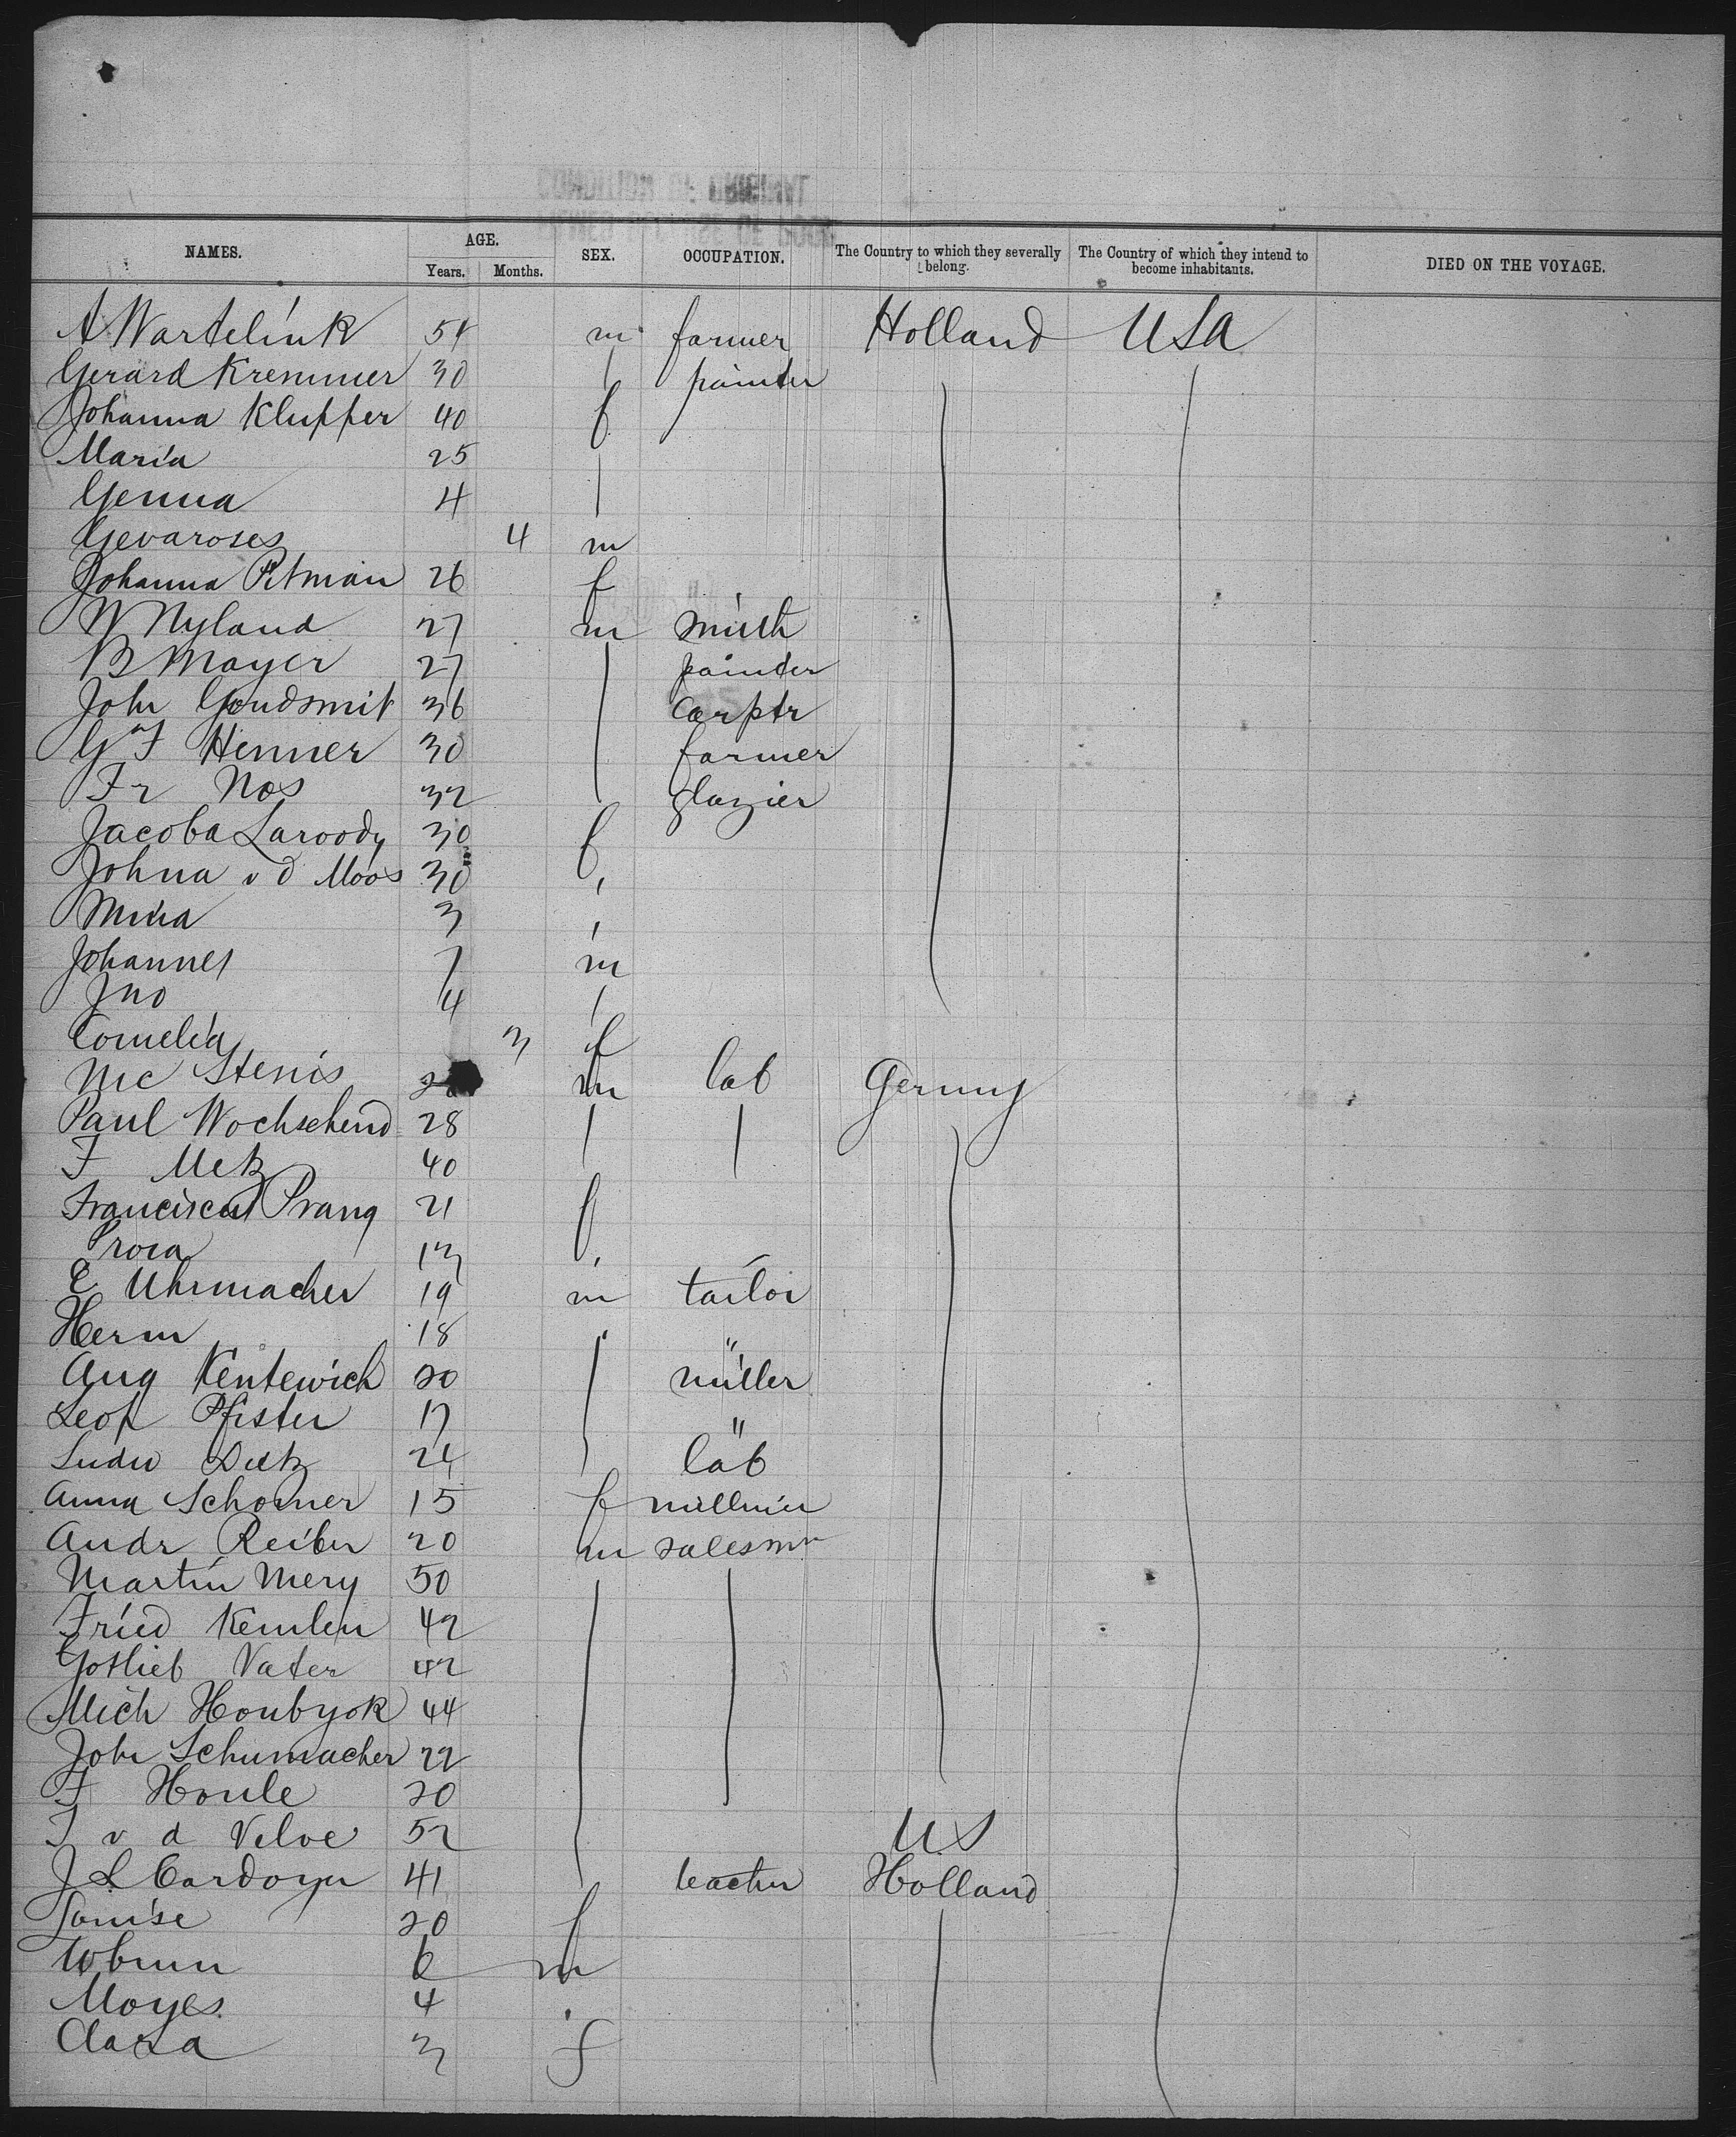 NAMES. AGE. Years. Months. SEX. OCCUPATION. The Country to which they severally belong. The Country of which they intend to become inhabitants. DIED ON THE VOYAGE.
A Wartelink 54 m farmer Holland USA
Gerard Kremmer 30 painter
Johanna Klupper 40 f
Maria 25
Genna 4
Gevaroses 4 m
Johanna Pitman 26 f
W Nyland 27 m smith
B Mayer 27 painter
John Goudsmit 36 carptr
G F Henner 30 farmer
Fr Nos 32 glazier
Jacoba Laroody 30 f
Johna v d Moos 30
Mina 3
Johannes 7 m
Jno 4
Cornelia 3 f
Nic Stenis m lab Germy
Paul Wochsehend 28
F Metz 40
Francisca Prang 21 f
Rosa 13
E Uhrmacher 19 m tailor
Herm 18 "
Aug Kentewich 20 miller
Leop Pfister 17 "
Ludw Dietz 24 lab
Anna Schomer 15 f milliner
Andr Reiber 20 m salesmn
Martin Mery 50
Fried Kemlen 42
Gotlieb Vater 42
Mich Houbyok 44
John Schumacher 22
F Houle 20
J v d Velve 52 US
J L Cardoyer 41 teacher Holland
Louise 20 f
6 m
Moyes 4
Clara 3 f